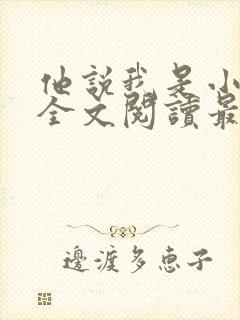 他説我是小
全文閱讀最
邊渡多恵子